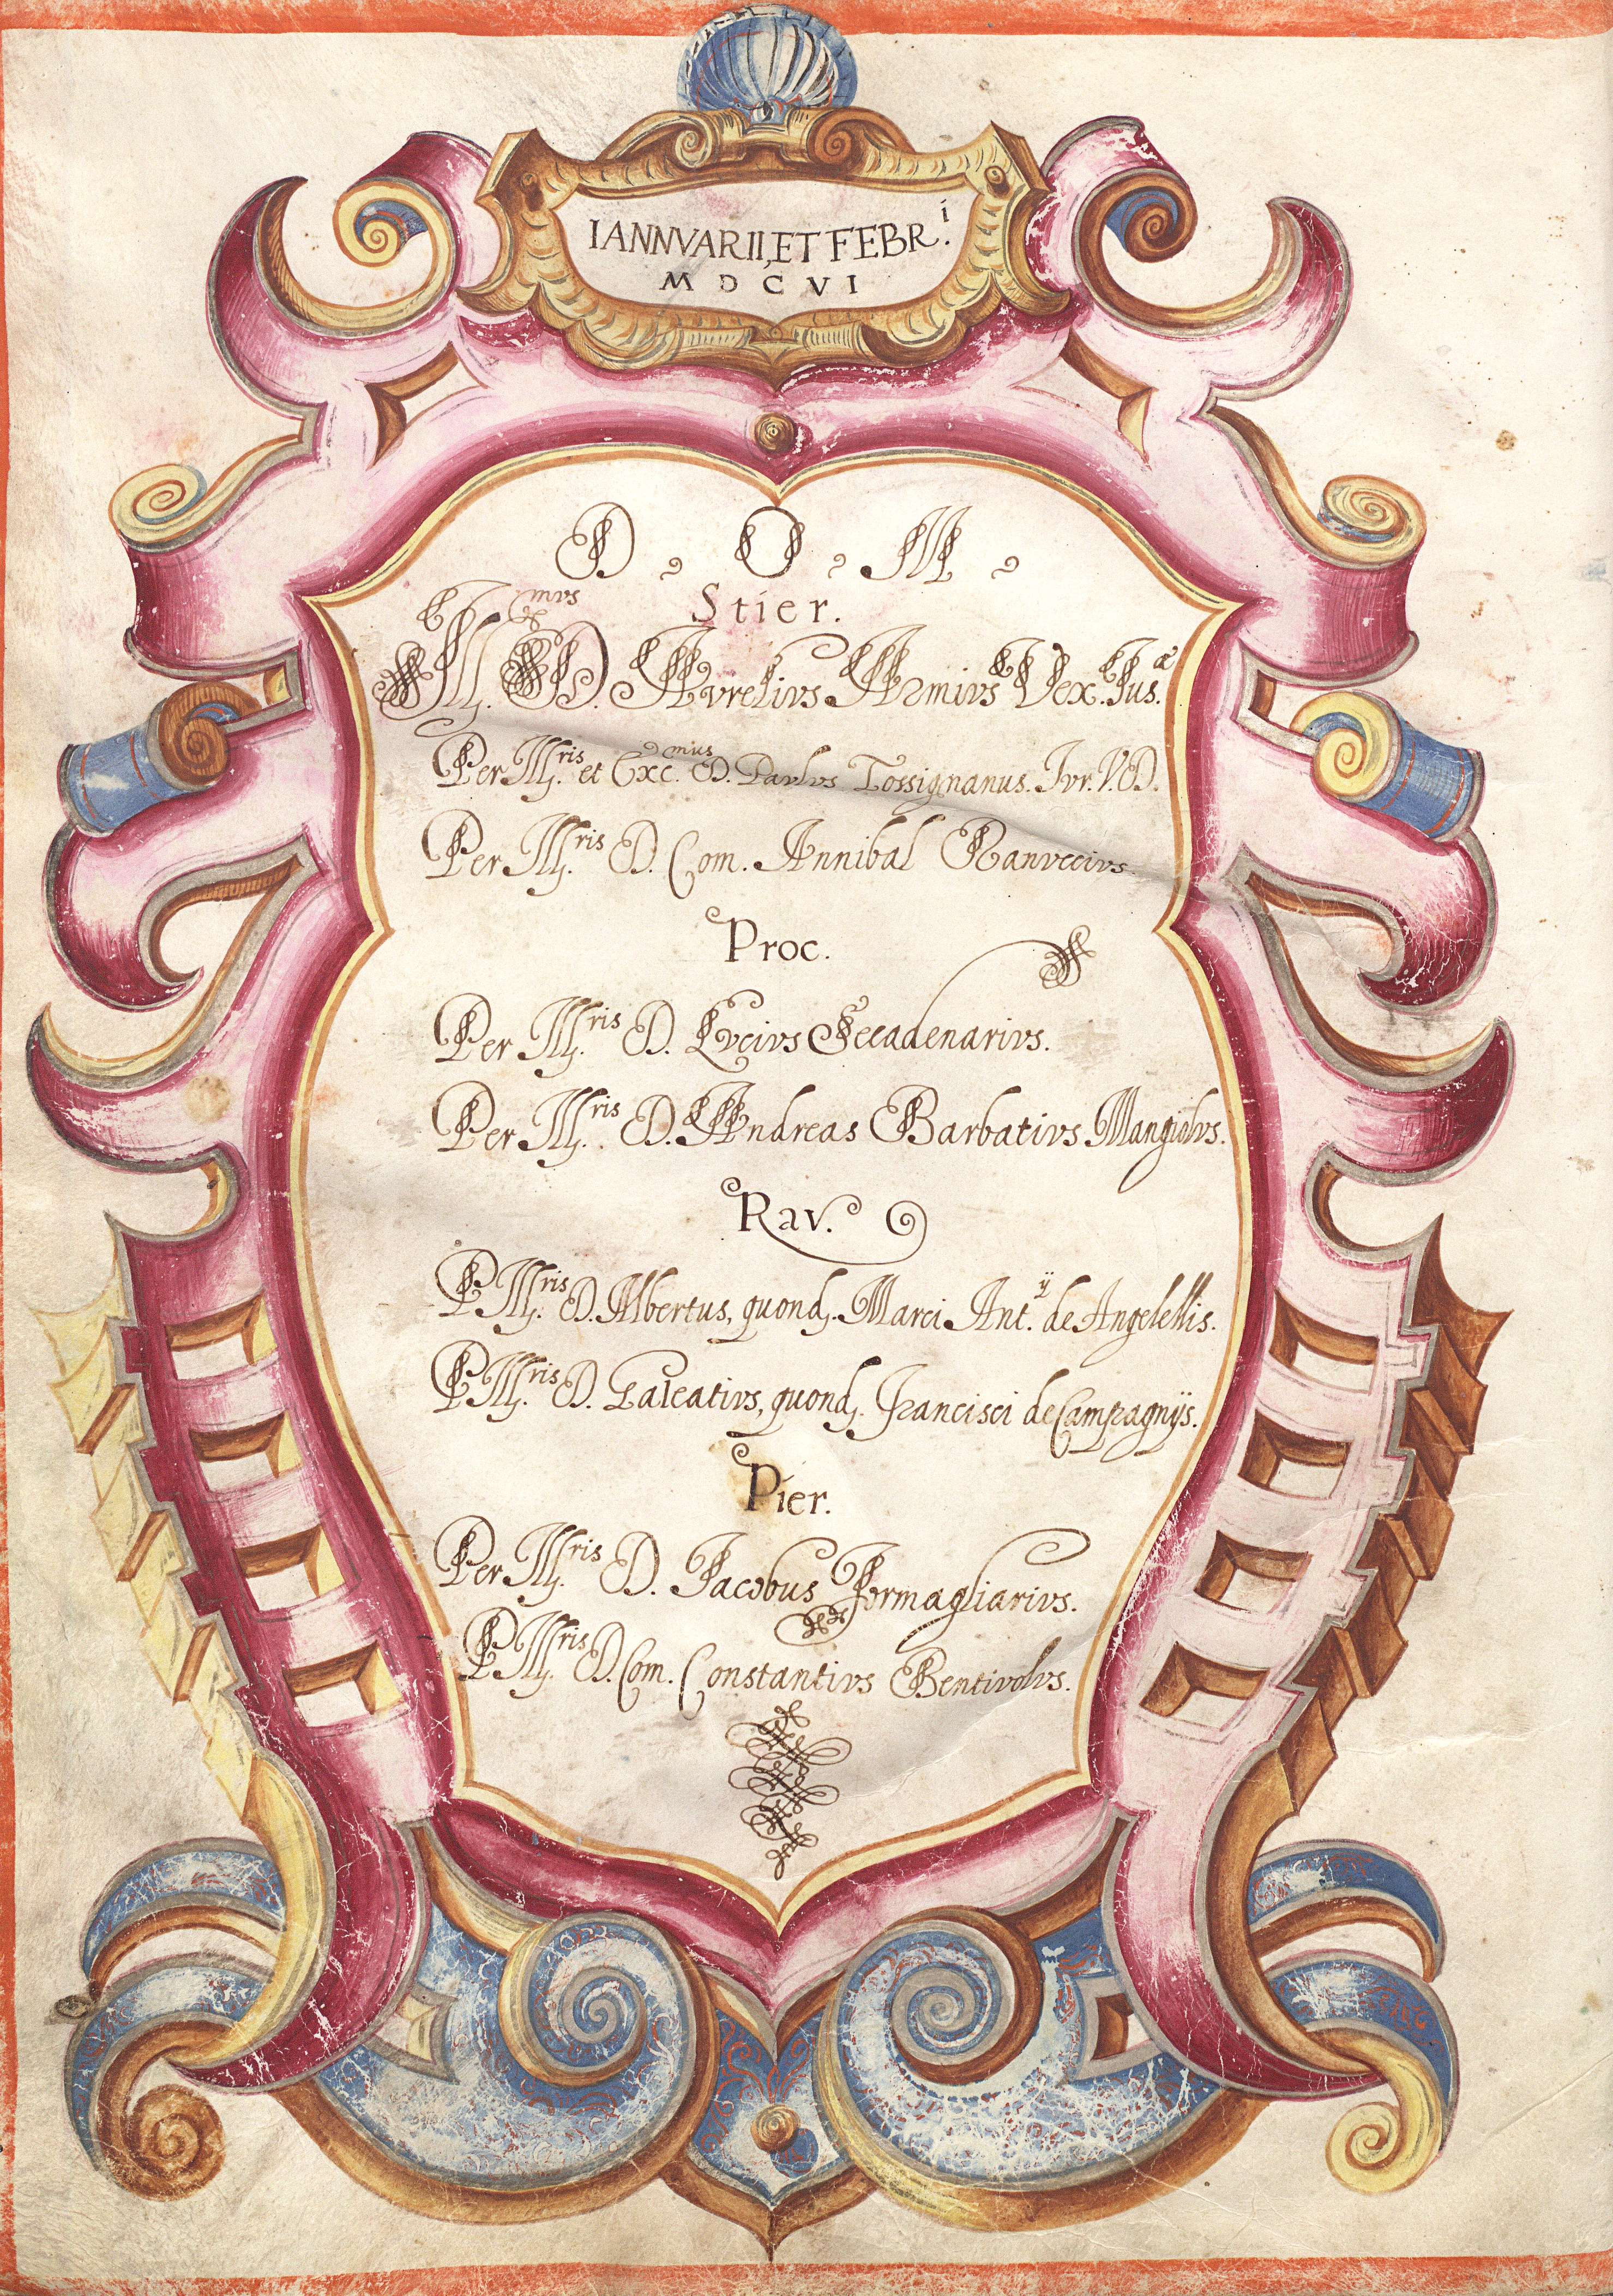 IANNVARII, ET FEBR.i
MDCVI
D. O. M.
Stier.
Ill.mvs D. Avrelivs Armivs Vex. Jus.æ
Per Ill.ris et Exc.mus D. Pavlvs Tossignanus. Jvr. V. D.
Per Ill.ris D. Com. Annibal Ranvccivs
Proc.
Per Ill.ris D. Lvcivs Seccadenarivs.
Per Ill.ris D. Andreas Barbativs Mangiolvs.
Rav.
P Ill.ris D. Albertus, quond. Marci Ant.ij de Angelellis.
P Ill.ris D. Galeativs, quond. Francisci de Campagnijs.
Pier.
Per Ill.ris D. Jacobus Formagliarivs.
P Ill.ris D. Com. Constantivs Bentivolvs.